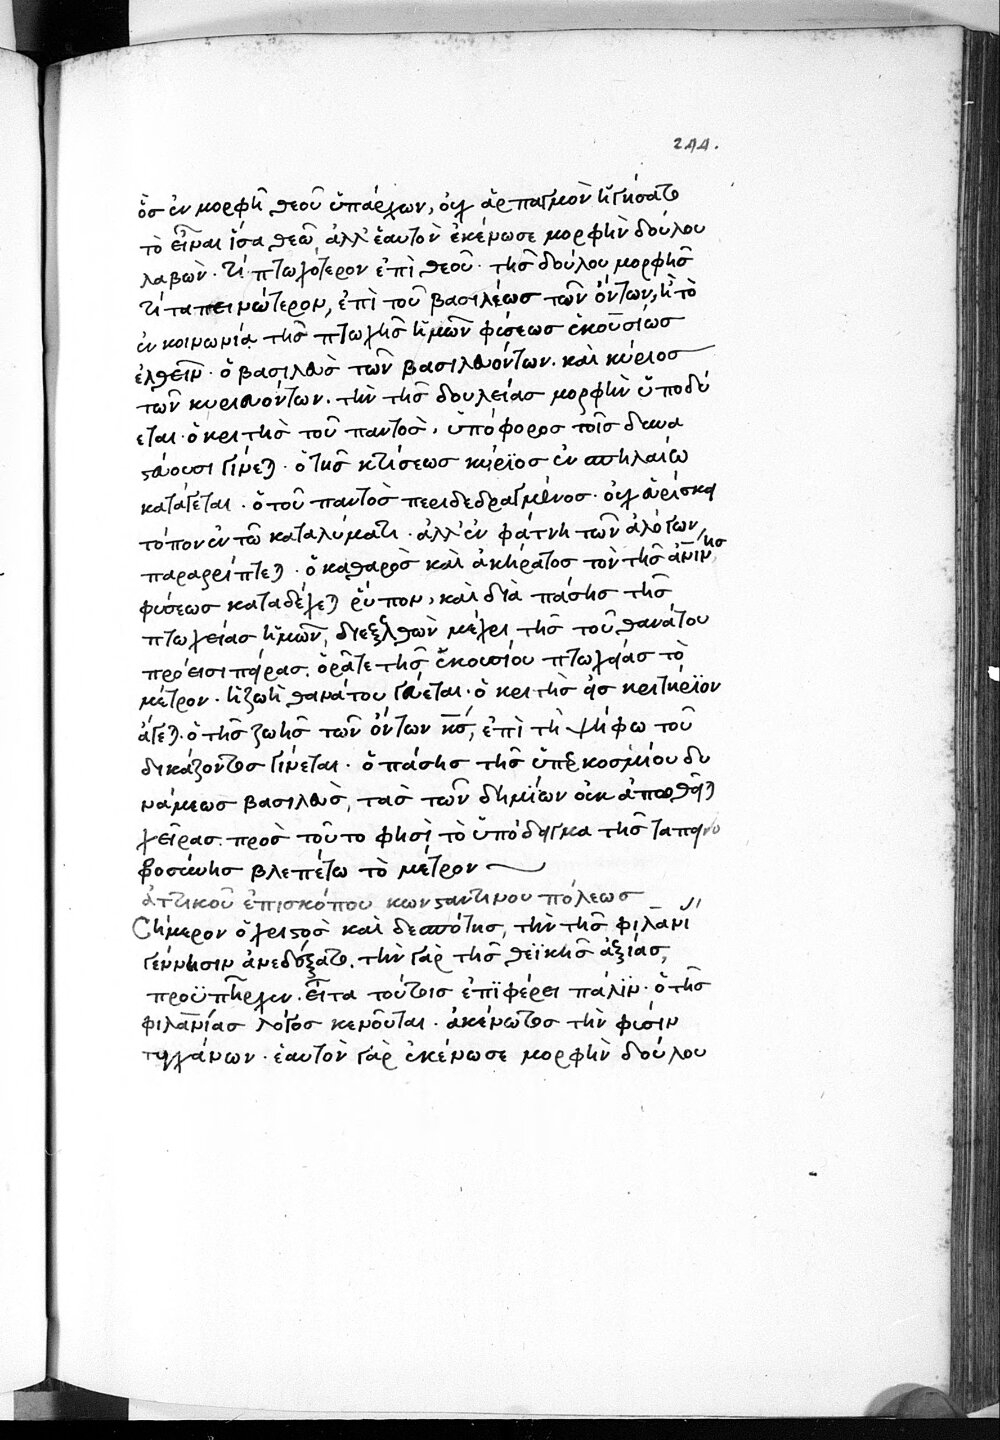 244.
ὃσ ἐν μορφῆ θεοῦ ὑπάρχων, οὐχ ἁρπαγμὸν ἡγήσατο
τὸ εἶναι ἴσα θεῶ, ἀλλ' ἑαυτὸν ἐκένωσε μορφὴν δούλου
λαβών· τί πτωχότερον ἐπὶ θεοῦ· τῆσ δούλου μορφῆσ
τί ταπεινώτερον, ἐπὶ τοῦ βασιλέωσ τῶν ὄντων, ἢ τὸ
ἐν κοινωνία τῆσ πτωχῆσ ἡμῶν φύσεωσ ἑκουσίωσ
ἐλθεῖν· ὁ βασιλεὺσ τῶν βασιλευόντων. καὶ κύριοσ
τῶν κυριευόντων. τὴν τῆσ δουλείασ μορφὴν ὑποδύ
εται· ὁ κριτὴσ τοῦ παντὸσ, ὑπόφοροσ τοῖσ δυνα
στεύουσι γίνεται· ὁ τῆσ κτίσεωσ κύριοσ ἐν σπηλαίω
κατάγεται· ὁ τοῦ παντὸσ περιδεδραγμένοσ· οὐχ εὑρίσκει
τόπον ἐν τῶ καταλύματι· ἀλλ' ἐν φάτνη τῶν ἀλόγων
παραρρίπτεται· ὁ καθαρὸσ καὶ ἀκήρατοσ τὸν τῆσ ἀνίνησ
φύσεωσ καταδέχεται ῥύπον, καὶ διὰ πάσησ τῆσ
πτωχείασ ἡμῶν, διεξελθὼν μέχρι τῆσ τοῦ θανάτου
πρόεισι πείρασ. ὁρᾶτε τῆσ ἑκουσίου πτωχείασ τὸ
μέτρον· ἡ ζωὴ θανάτου γεύεται· ὁ κριτὴσ εἰσ κριτήριον
ἄγεται· ὁ τῆσ ζωῆσ τῶν ὄντων κσ, ἐπὶ τῆ ψήφω τοῦ
δικάζοντοσ γίνεται· ὁ πάσησ τῆσ ὑπερκοσμίου δυ
νάμεωσ βασιλεὺσ, τὰσ τῶν δημίων οὐκ ἀπωθεῖται
χεῖρασ. πρὸσ τοῦτο φησὶ τὸ ὑπόδειγμα τῆσ ταπεινο
φροσύνησ βλεπέτω τὸ μέτρον
ἀττικοῦ ἐπισκόπου κωνσταντινουπόλεωσ
Σήμερον ὁ χριστὸσ καὶ δεσπότησ, τὴν τῆσ φιλανί
γέννησιν ἀνεδέξατο. τὴν γὰρ τῆσ θεϊκῆσ ἀξίασ,
προϋπῆρχεν. εἶτα τούτοισ ἐπιφέρει πάλιν· ὁ τῆσ
φιλανίασ λόγοσ κενοῦται· ἀκένωτοσ τὴν φύσιν
τυγχάνων· ἑαυτὸν γὰρ ἐκένωσε μορφὴν δούλου